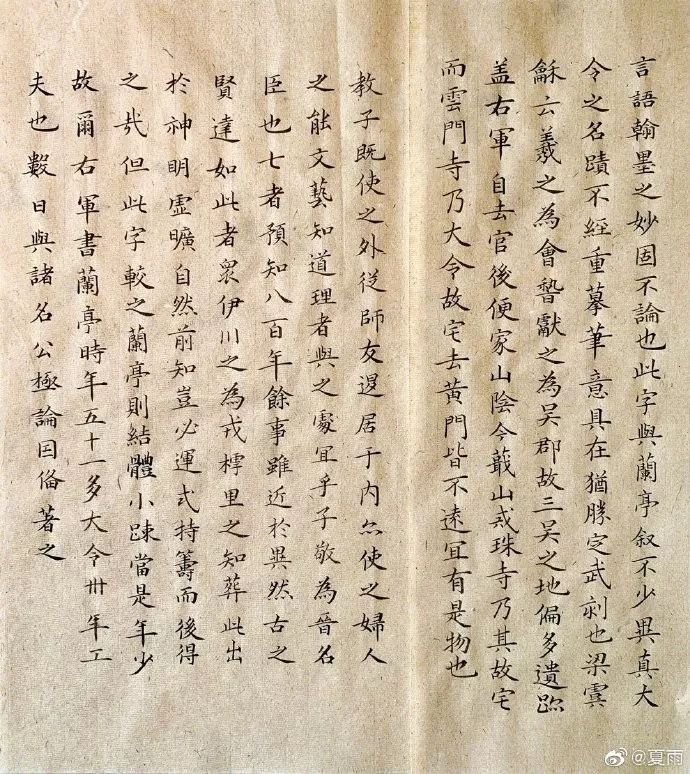 言語翰墨之妙固不論也此字與蘭亭叙不少異真大
令之名蹟不經重摹筆意具在猶勝定武剥也梁虞
龢云羲之為會嵇獻之為吴郡故三吴之地偏多遺跡
盖右軍自去官後便家山陰今蕺山戒珠寺乃其故宅
而雲門寺乃大令故宅去黄門皆不遠宜有是物也
教子既使之外從師友退居于内亦使之婦人
之能文藝知道理者與之處宜乎子敬為晉名
臣也七者預知八百年餘事雖近於異然古之
賢達如此者衆伊川之為戎樗里之知葬此出
於神明虚曠自然前知豈必運式持籌而後得
之㦲但此字較之蘭亭則結體小踈當是年少
故爾右軍書蘭亭時年五十一多大令卅年工
夫也數日與諸名公極論因俻著之
@夏雨